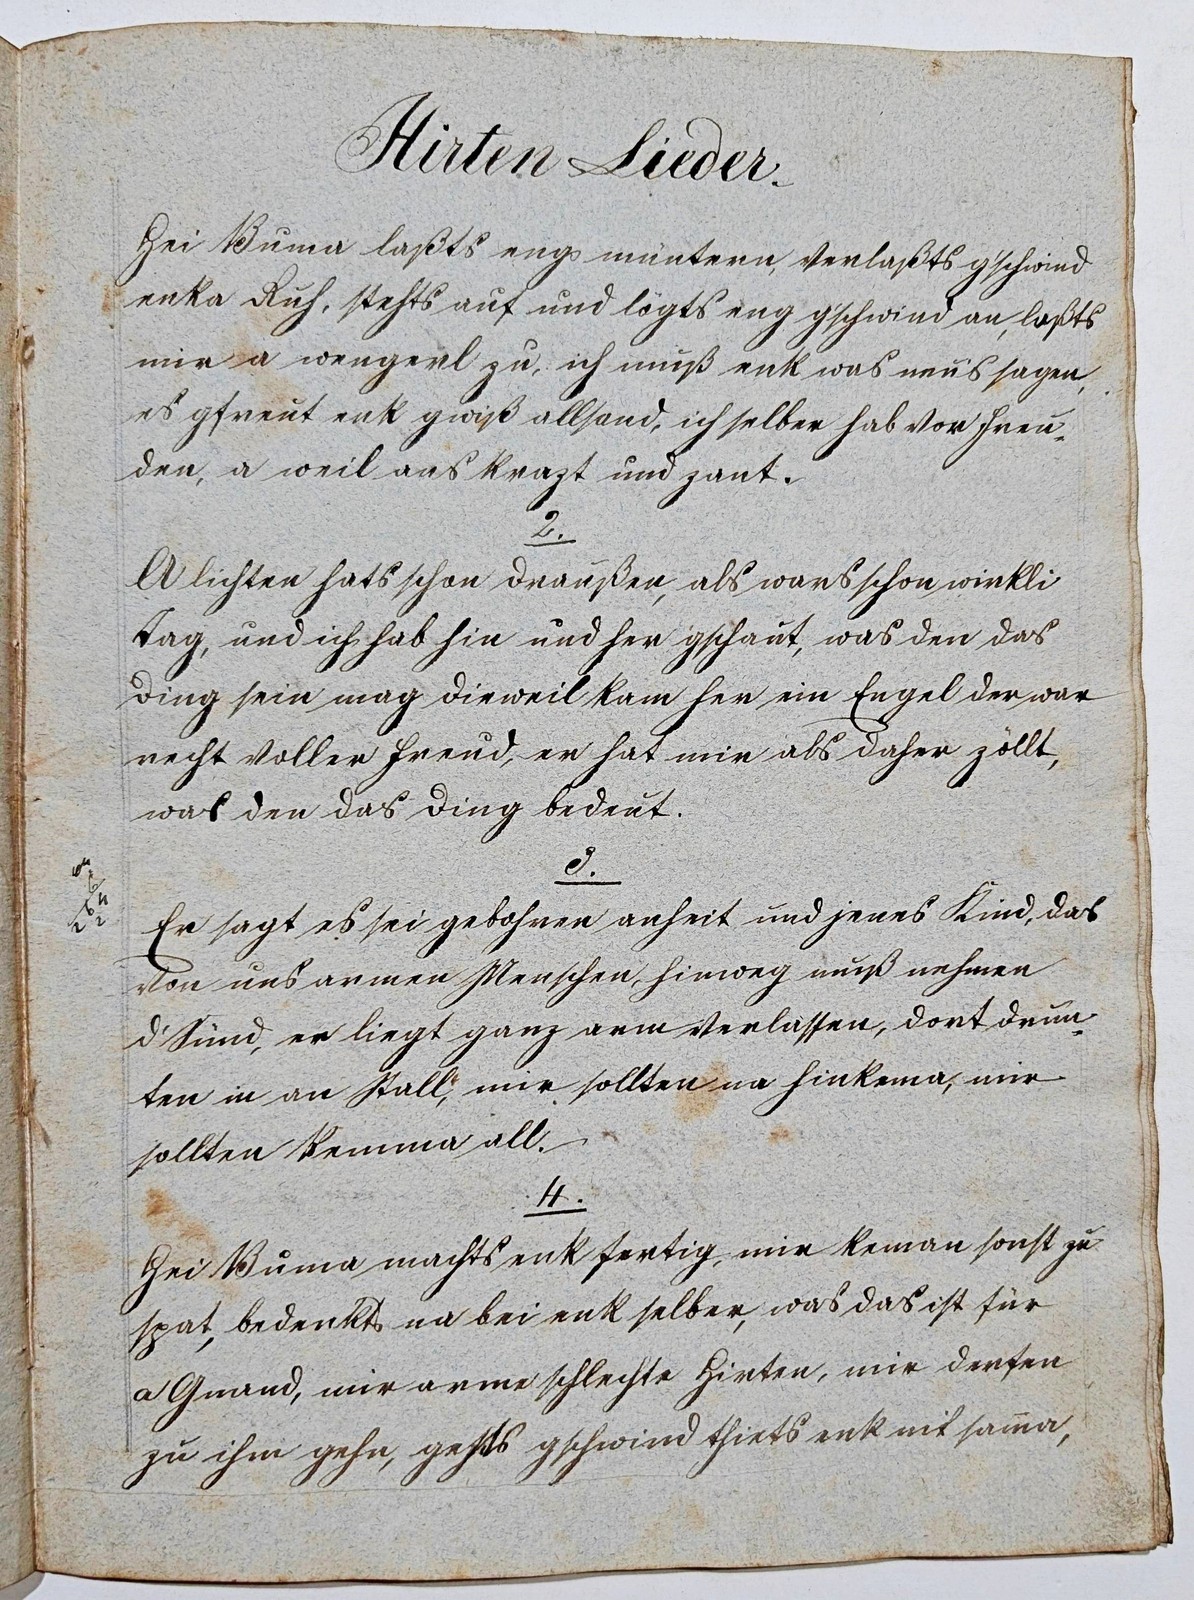 Hirten Lieder.
Hei Buma laßts eng müntern, verlaßts gschwind
enka Ruh, stehts auf und lögts eng gschwind an, laßts
mir a wengerl zu, ich muß enk was neüs sagen,
es gfreut enk gwiß allsand, ich selber hab vor Freu-
den, a weil ans krazt und zant.
2.
A lichten hats schon draußen, als wars schon wirkli
Tag, und ich hab hin und her gschaut, was den das
Ding sein mag dieweil kam her ein Engel der war
recht voller Freud, er hat mir als daher zöllt,
was den das Ding bedeut.
3.
Er sagt es sei gebohren anheit und jenes Kind, das
von uns armen Menschen, hinweg muß nehmen
d' Sünd, er liegt ganz arm verlassen, dort drun-
ten in an Stall, mir sollten na hinkema, mir
sollten kemma all.
4.
Hei Buma machts enk fertig, mir keman sonst zu
spat, bedenkts na bei enk selber, was das ist für
a Gnand, mir arme schlechte Hirten, mir derfen
zu ihm gehn, gehts gschwind thiets enk nit sam̅a,